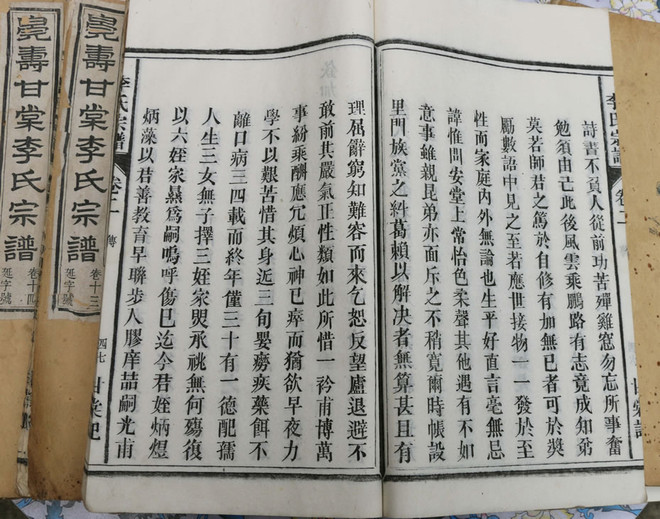 李氏宗譜 卷二
詩書不負人從前功苦殫雞窓勿忘所事奮
勉須由己此後風雲乘鵬路有志竟成知弟
莫若師君之篤於自修有加無已者可於奬
勵數語中見之至若應世接物一一發於至
性而家庭內外無論也生平好直言毫無忌
諱惟問安堂上常怡色柔聲其他遇有不如
意事雖親昆弟亦面斥之不稍寬爾時帳設
里門族黨之糾葛賴以解決者無算甚且有
理屈辭窮知難容而來乞恕反望廬退避不
敢前其嚴氣正性類如此所惜一衿甫博萬
事紛乘酬應冗煩心神已瘁而猶欲早夜力
學不以艱苦惜其身近三旬嬰癆疾藥餌不
離口病三四載而終年僅三十有一德配孺
人生三女無子擇三姪家煚承祧無何殤復
以六姪家爲嗣嗚呼傷已迄今君姪炳煜
炳藻以君善教育早聯步人膠庠喆嗣光甫
李氏宗譜 卷二 傳 四七 甘棠記
壽甘棠李氏宗譜 卷十三 字號
壽甘棠李氏宗譜 卷十四 字號